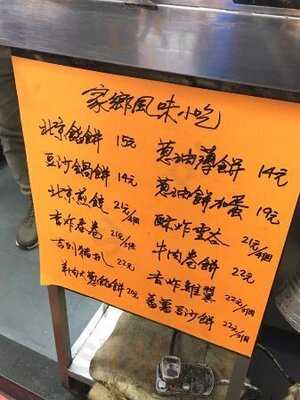 家鄉風味小吃
北京餡餅 15元
豆沙鍋餅 14元
北京煎飩 21元/4個
香炸春卷 21元/3個
吉列豬扒 22元
羊肉大蔥餡餅 20元
蔥油薄餅 14元
蔥油餅加蛋 19元
酥炸雲吞 21元/4個
牛肉卷餅 22元
香炸雞翼 22元/4個
蕃薯豆沙餅 22元/4個